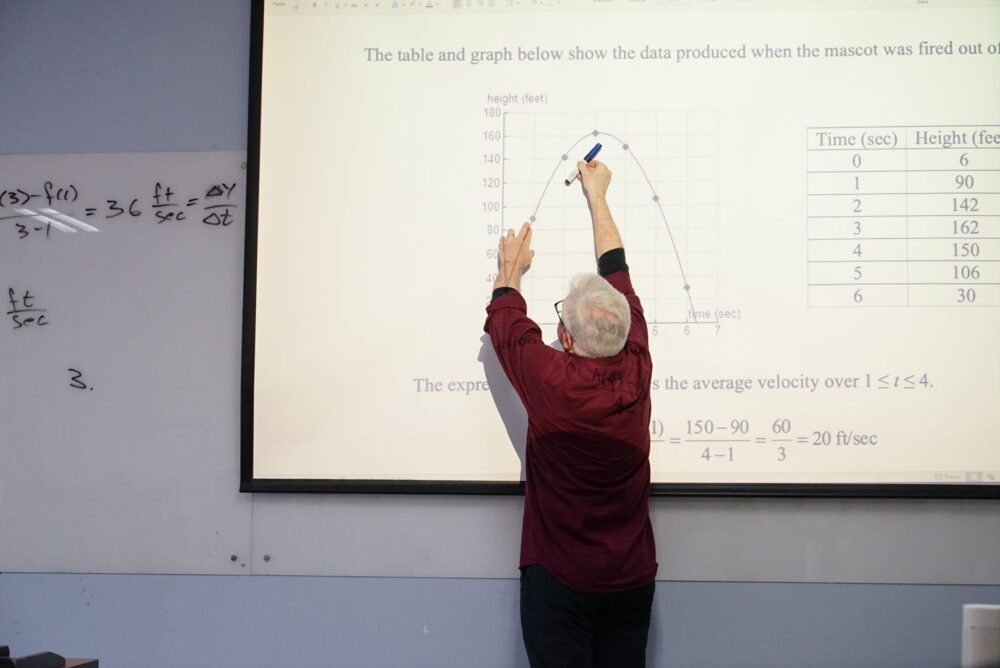 (3)-f(1)
3-1
= 36 ft/sec = ΔY/Δt
ft/sec
3.
The table and graph below show the data produced when the mascot was fired out of
height (feet)
180
160
140
120
100
80
60
40
time (sec)
5 6 7
Time (sec) Height (fee
0 6
1 90
2 142
3 162
4 150
5 106
6 30
The expre s the average velocity over 1 ≤ t ≤ 4.
1) = 150 – 90 / 4 – 1 = 60 / 3 = 20 ft/sec